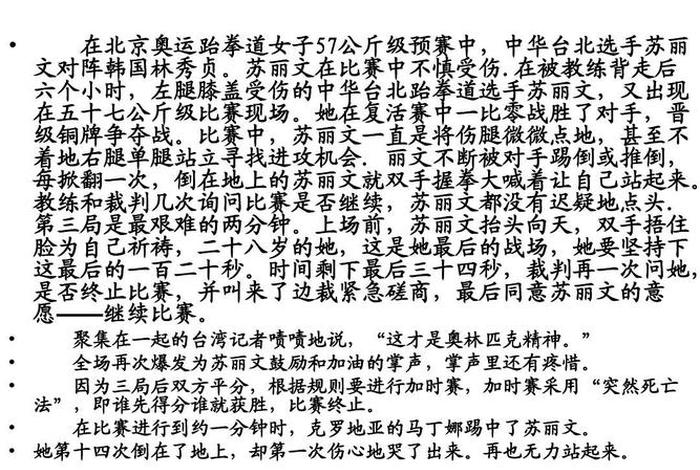 • 在北京奥运跆拳道女子57公斤级预赛中，中华台北选手苏丽
文对阵韩国林秀贞。苏丽文在比赛中不慎受伤.在被教练背走后
六个小时，左腿膝盖受伤的中华台北跆拳道选手苏丽文，又出现
在五十七公斤级比赛现场。她在复活赛中一比零战胜了对手，晋
级铜牌争夺战。比赛中，苏丽文一直是将伤腿微微点地，甚至不
着地右腿单腿站立寻找进攻机会. 丽文不断被对手踢倒或推倒，
每掀翻一次，倒在地上的苏丽文就双手握拳大喊着让自己站起来。
教练和裁判几次询问比赛是否继续，苏丽文都没有迟疑地点头.
第三局是最艰难的两分钟。上场前，苏丽文抬头向天，双手捂住
脸为自己祈祷，二十八岁的她，这是她最后的战场，她要坚持下
这最后的一百二十秒。时间剩下最后三十四秒，裁判再一次问她，
是否终止比赛，并叫来了边裁紧急磋商，最后同意苏丽文的意
愿——继续比赛。
• 聚集在一起的台湾记者啧啧地说，“这才是奥林匹克精神。”
• 全场再次爆发为苏丽文鼓励和加油的掌声，掌声里还有疼惜。
• 因为三局后双方平分，根据规则要进行加时赛，加时赛采用“突然死亡
法”，即谁先得分谁就获胜，比赛终止。
• 在比赛进行到约一分钟时，克罗地亚的马丁娜踢中了苏丽文。
• 她第十四次倒在了地上，却第一次伤心地哭了出来。再也无力站起来。